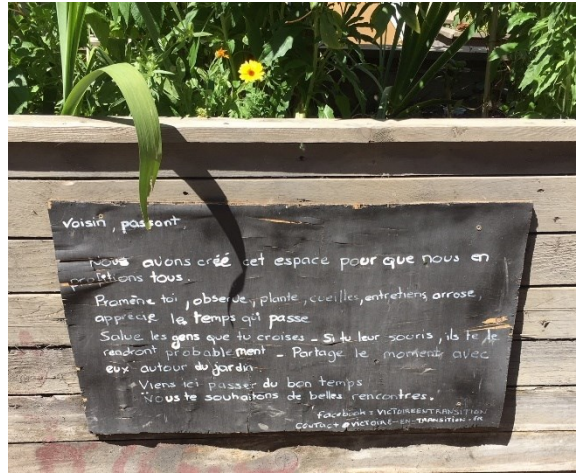 Voisin, passant,
Nous avons créé cet espace pour que nous en
profitions tous.
Promène toi, observe, plante, cueilles, entretiens, arrose,
apprécie le temps qui passe
Salue les gens que tu croises - Si tu leur souris, ils te le
rendront probablement - Partage le moment avec
eux autour du jardin
Viens ici passer du bon temps
Nous te souhaitons de belles rencontres.
facebook : VICTOIREENTRANSITION
CONTACT@VICTOIRE-EN-TRANSITION.FR